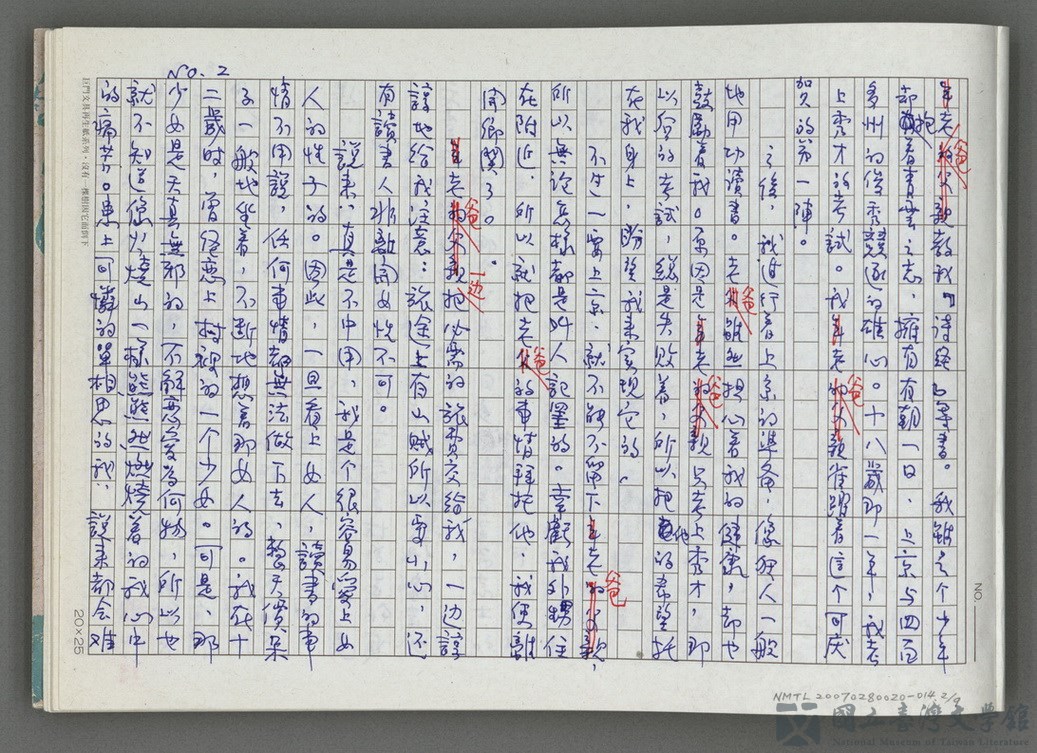 NO. 2
老爸教我『詩経』等書。我雖是个少年
却抱着青雲之志，擁有有朝一日，上京与四百
多州的俊秀競逐的雄心。十八歲那一年，我考
上秀才的考試。我老爸雀躍着這个可庆
賀的第一陣。
之後，我進行着上京的準备，像狂人一般
地用功讀書。老爸雖然担心着我的健康，却也
鼓勵着我。原因是老爸只考上秀才，即
以后的考試，総是失敗着，所以把他的希望托
在我身上，盼望我来實現它的。
不过一要上京，就不能不留下老爸，
所以無論怎樣都是叫人記罣的。幸虧我外甥住
在附近，所以就把老爸的事情拜托他，我便離
開鄉関了。
老爸一边把必需的旅費交給我，一边諄
諄地給我注意：旅途上有山賊所以要小心，还
有讀書人非離開女性不可。
說来，真是不中用，我是个很容易愛上女
人的性子的。因此，一旦看上女人，讀書的事
情不用說，任何事情都無法做下去，整天儍呆
子一般地坐着，不断地想着那女人的。我在十
二歲時，曾経恋上村裡的一个少女。可是，那
少女是天真無邪的，不解恋愛為何物，所以也
就不知道像火燒山一樣熊熊燃燒着的我心中
的痛苦。患上可憐的單相思的我，說来都会难
巨門文具再生紙系列・沒有一棵樹因它而倒下
20×25
NO.
NMTL 20070280020-014 2/9
國立臺灣文學館
National Museum of Taiwan Literature